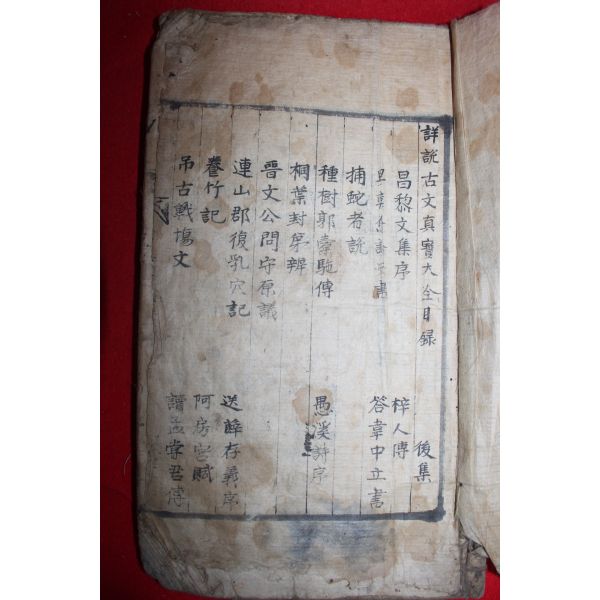 詳說古文真寶大全目錄 後集
昌黎文集序 梓人傳
書 答韋中立書
捕蛇者說
種樹郭橐駞傳 愚溪詩序
桐葉封第辨
晋文公問守原議
連山郡復乳穴記 送薛存義序
養竹記 阿房宮賦
吊古戰場文 讀孟甞君傳